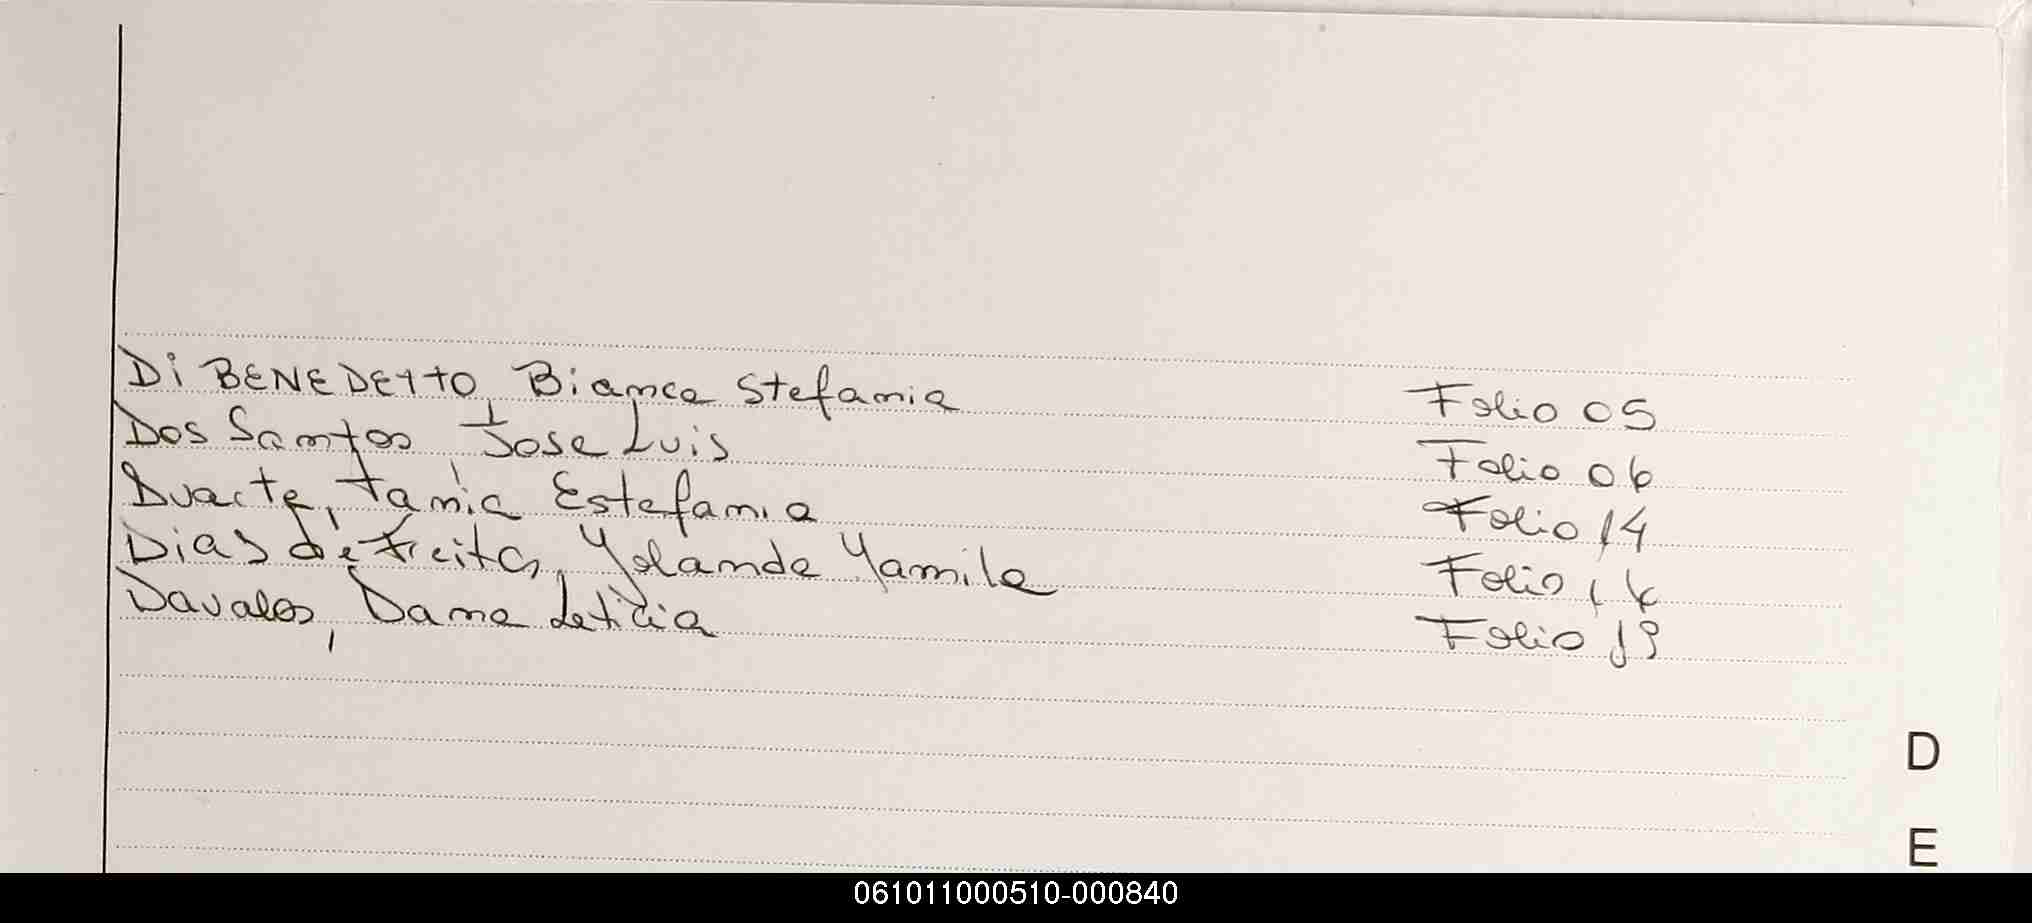 Di BENEDETTO, Bianca Stefania Folio 05
Dos Santos, Jose Luis Folio 06
Duarte, Tania Estefania Folio 14
Dias de Freitas, Yolanda Yamila Folio 16
Davalos, Dama Leticia Folio 19
D
E
061011000510-000840